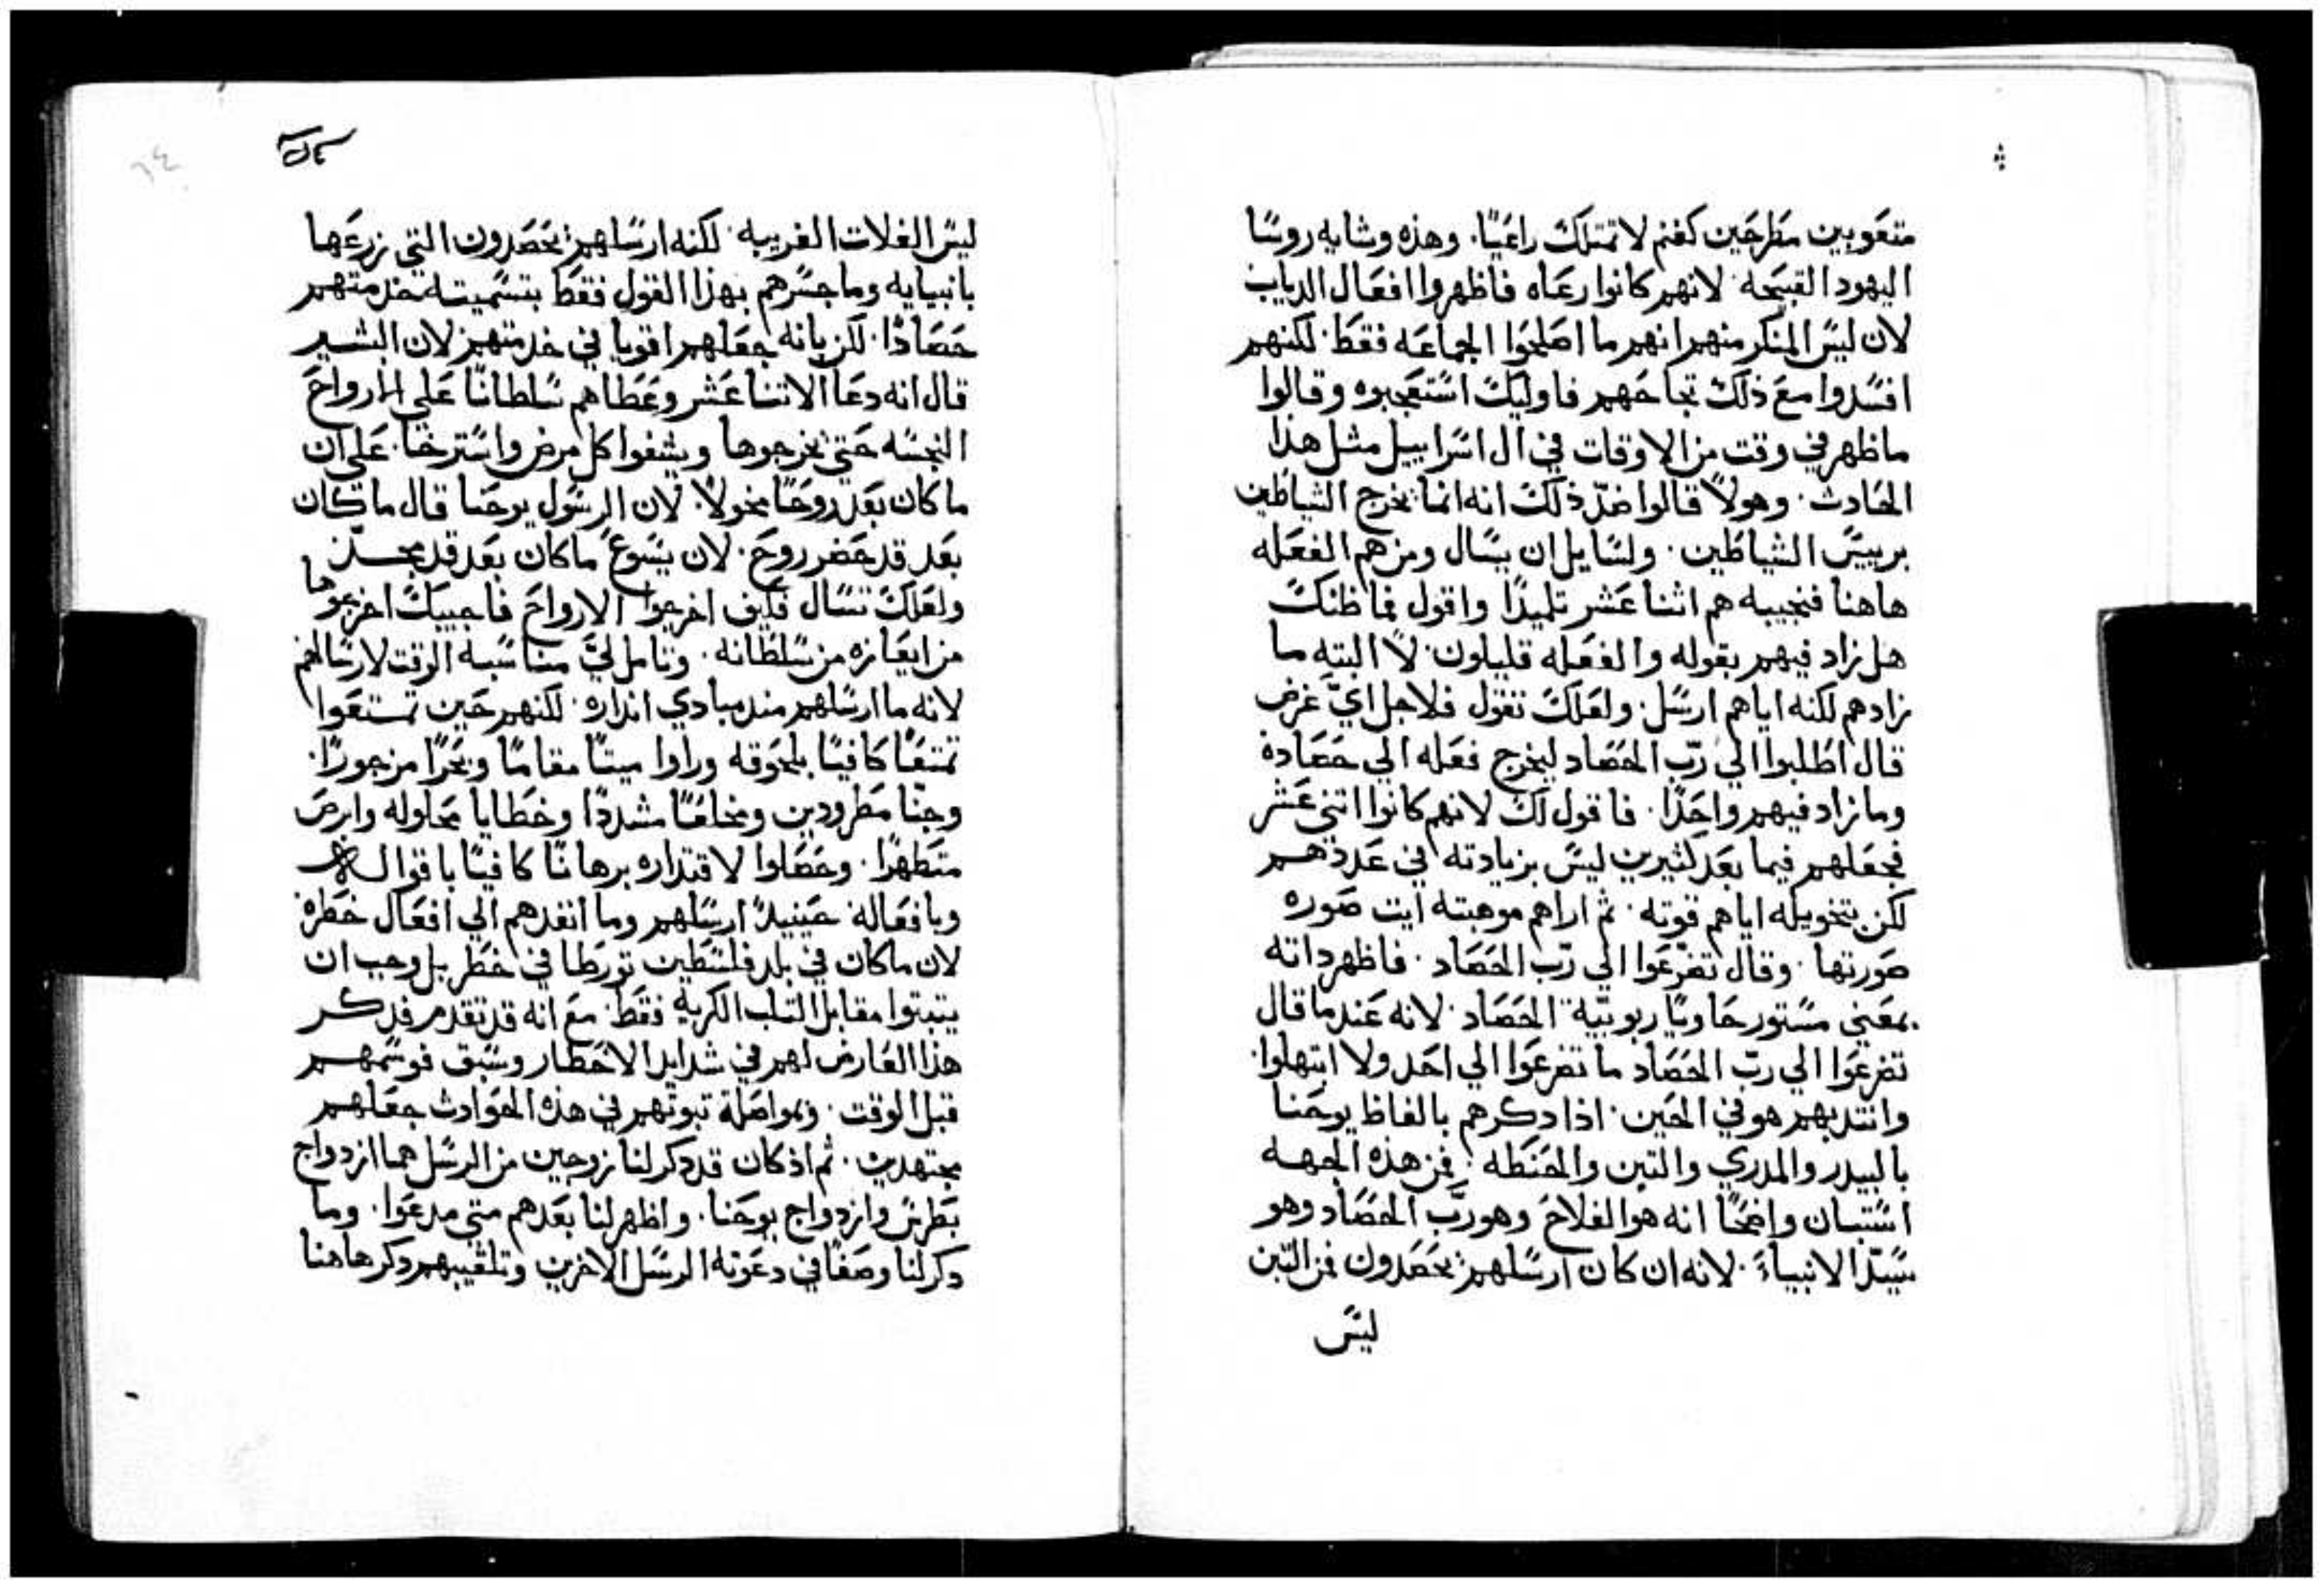 متعوبين مطرحين كغنم لا تمتلك راعيًا. وهذه وشايه روسًا
اليهود القبيحه. لانهم كانوا رعاه فاظهروا افعال الدياب
لان ليس المنكر منهم انهم ما اصلحوا الجماعه فقط. لكنهم
افسدوا مع ذلك نجاحهم فاوليك استعجبوه وقالوا
ما ظهر في وقت من الاوقات في ال اسراييل مثل هذا
الحادث. وهولاً قالوا ضدّ ذلك انه انما يخرج الشياطين
برييس الشياطين. ولسايل ان يسال ومن هم الفعله
هاهنا فنجيبه هم اثنا عشر تلميذًا واقول فما ظنك
هل زاد فيهم بقوله والفعله قليلون. لا البته ما
زادهم لكنه اياهم ارسل. ولعلك تقول فلاجل ايّ غرض
قال اطلبوا الي ربّ الحصاد ليخرج فعله الي حصاده
وما زاد فيهم واحدًا. فاقول لك لانهم كانوا اتني عشر
فجعلهم فيما بعد كثيرين ليس بزيادته في عددهم
لكن بتخويله اياهم قوته. ثم اراهم موهبته ايت صوره
صورتها. وقال تضرّعوا الي ربّ الحصاد. فاظهر داته
بمعني مستور حاويًا ربوبيّة الحصاد. لانه عندما قال
تضرعوا الي ربّ الحصاد ما تضرعوا الي احد ولا ابتهلوا.
وانتدبهم هو في الحين. اذا دكرهم بالفاظ يوحنا
بالبيدر والمدري والتبن والحنطه. فمن هذه الجهه
استبان واضحًا انه هو الفلاح وهو ربّ الحصاد وهو
سيّد الانبياء. لانه ان كان ارسلهم يحصدون فمن البيّن
ليس
ليس الغلات الغريبه. لكنه ارسلهم يحصدون التي زرعها
بانبيايه وما جسّرهم بهذا القول فقط بتسميته خدمتهم
حصادًا. لكن بانه جعلهم اقويا في خدمتهم لان البشير
قال انه دعا الاتنا عشر وعطاهم سلطانًا علي الارواح
النجسه حتي يخرجوها ويشفوا كل مرض واسترخا. علي ان
ما كان بعد روحًا مخولاً. لان الرسول يوحنا قال ما كان
بعد قد حضر روح. لان يسوع ما كان بعد قد مجّد
ولعلك تسال فكيف اخرجوا الارواح فاجيبك اخرجوها
من ايعازه من سلطانه. وتامل ليَ مناسبه الوقت لارسالهم
لانه ما ارسلهم مند مبادي انداره. لكنهم حين تمتعوا
تمتعًا كافيًا بلحوقه وراوا ميتًا مقامًا وبحرًا مزجورًا.
وجنّا مطرودين ومخلعًا مشددًا وخطايا محلوله وابرص
متطهرًا. وحصلوا لاقتداره برهانًا كافيًا باقواله
وبافعاله حينيدً ارسلهم وما انفدهم الي افعال خطره
لان ما كان في بلد فلسطين تورطا في خطر بل وجب ان
يتبتوا مقابل التلب الكريه فقط. مع انه قد تقدم فدكر
هذا العارض لهم في شدايد الاخطار وسبق فوسمهم
قبل الوقت. وبمواصلة تبوتهم في هذه الحوادث جعلهم
مجتهدين. ثم اذ كان قد دكر لنا زوجين من الرسل هما ازدواج
بطرس وازدواج يوحنا. واظهر لنا بعدهم متي مدعوا. وما
دكر لنا وصفًا في دعوته الرسل الاخرين وتلقيبهم دكر هاهنا